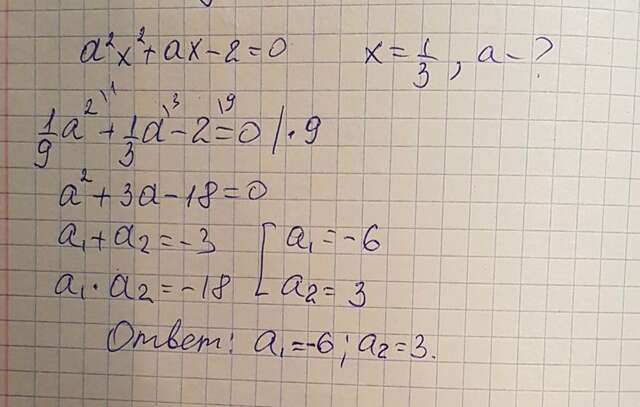 a²x² + ax - 2 = 0    x = 1/3, a - ?
1/9 a² \¹ + 1/3 a \³ - 2 \⁹ = 0 | · 9
a² + 3a - 18 = 0
a₁ + a₂ = -3    [ a₁ = -6
a₁ · a₂ = -18    [ a₂ = 3
Ответ: a₁ = -6; a₂ = 3.